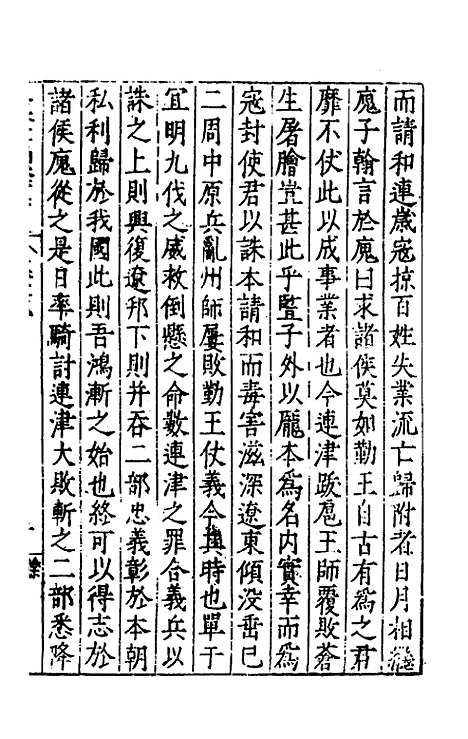 而請和連歲寇掠百姓失業流亡歸附者日月相繼
廆子翰言於廆曰求諸侯莫如勤王自古有爲之君
靡不伏此以成事業者也今連津跋扈王師覆敗蒼
生屠膾豈甚此乎豎子外以龐本爲名内實幸而爲
寇封使君以誅本請和而毒害滋深遼東傾没垂已
二周中原兵亂州師屢敗勤王仗義今其時也單于
宜明九伐之威救倒懸之命數連津之罪合義兵以
誅之上則興復遼邦下則并吞二部忠義彰於本朝
私利歸於我國此則吾鴻漸之始也終可以得志於
諸侯廆從之是日率騎討連津大敗斬之二部悉降